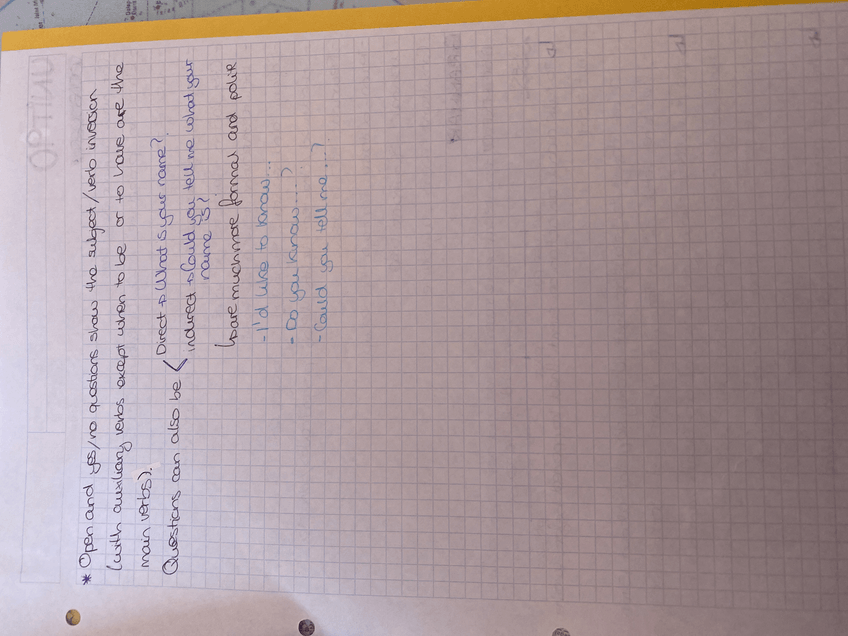 * Open and yes/no questions show the subject/verb inversion
(with auxiliary verbs except when to be or to have are the
main verbs).
Questions can also be < Direct → What's your name?
indirect → Could you tell me what your
name is?
↳ are much more formal and polite
- I'd like to know...
- Do you know...?
- Could you tell me...?